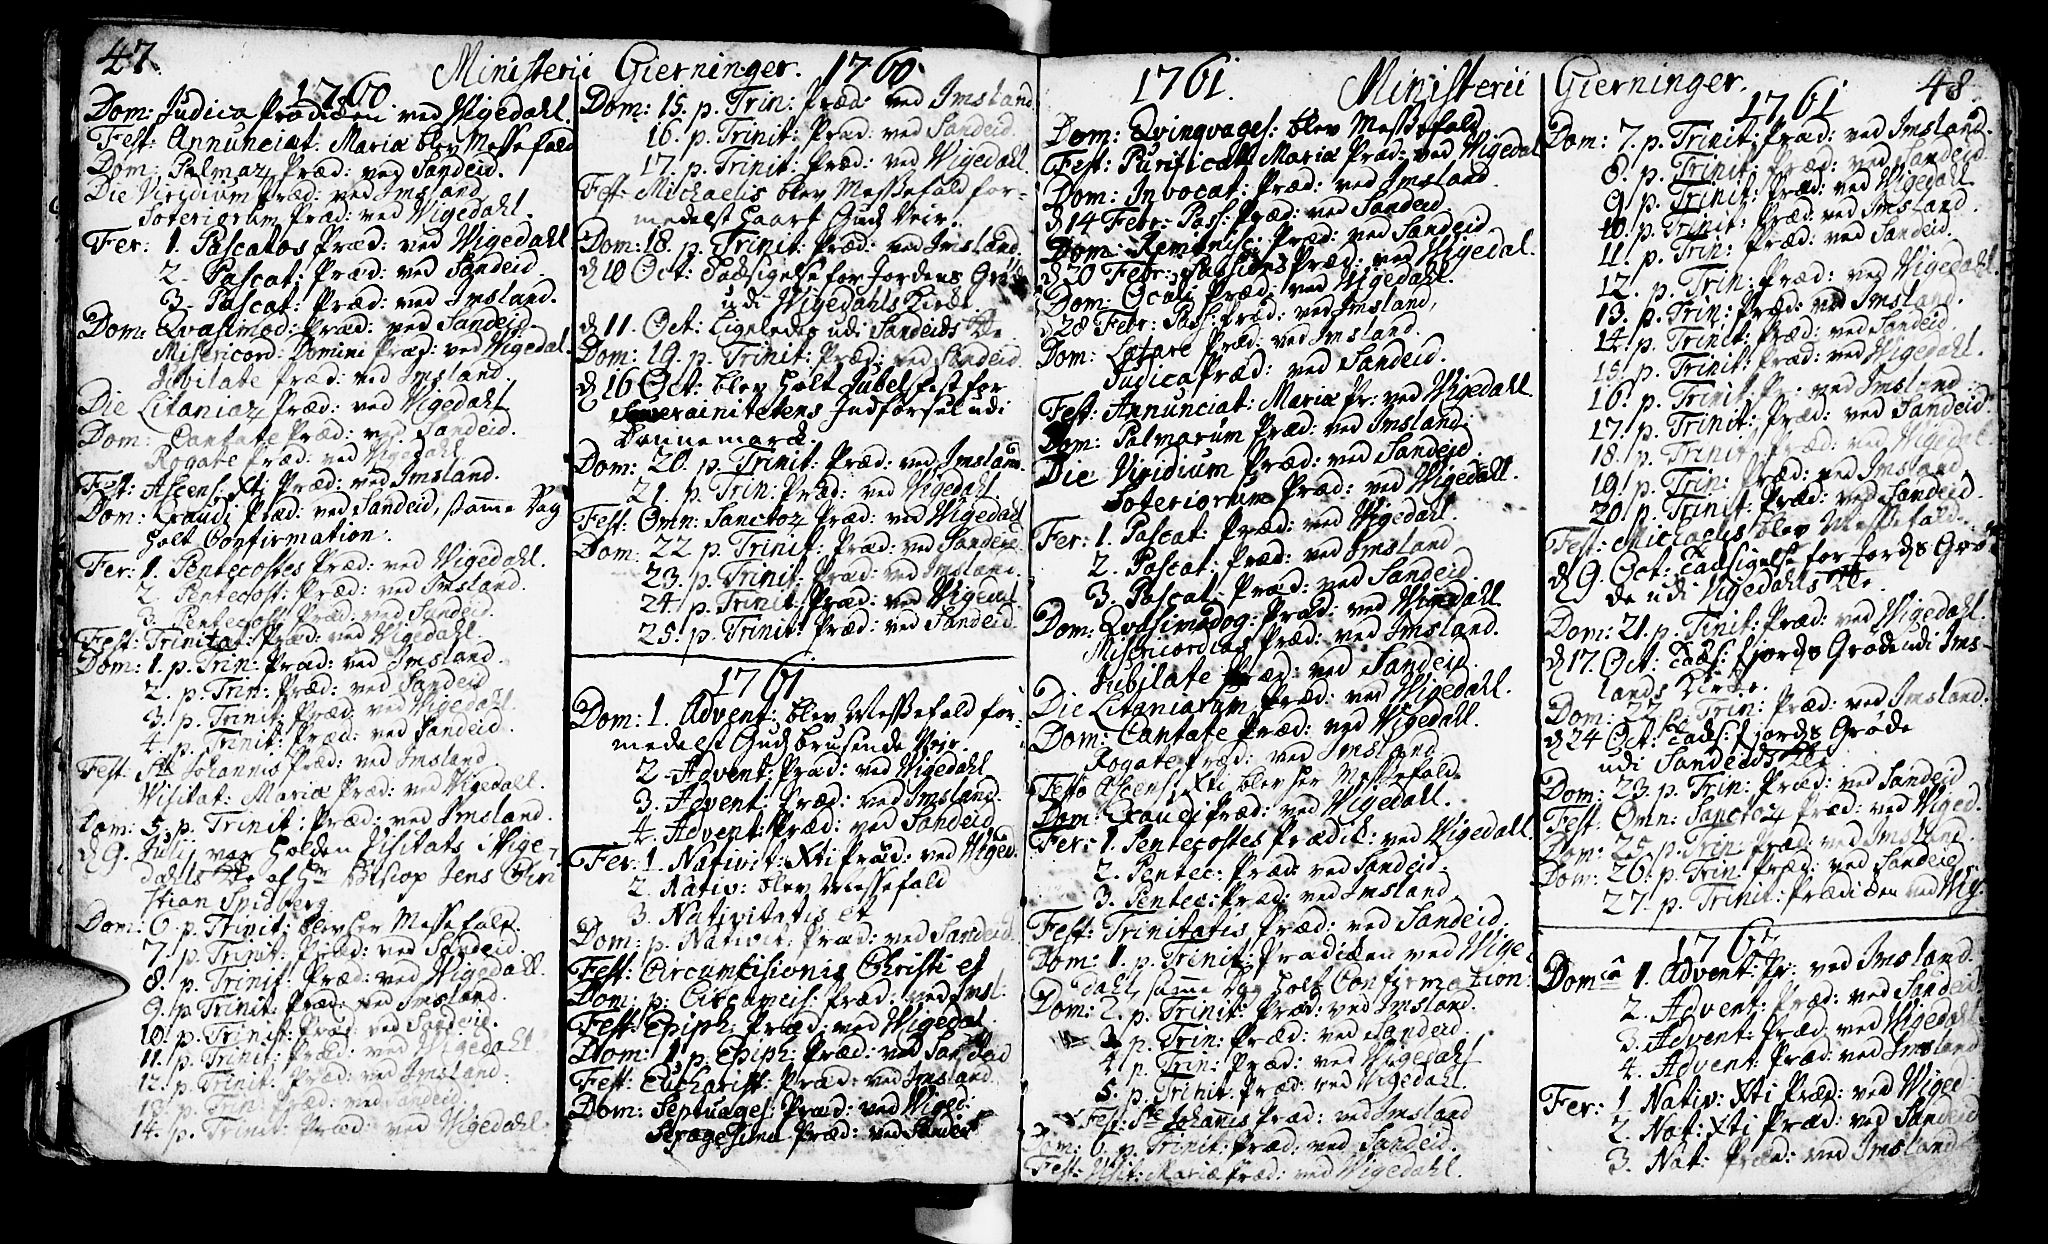 47.
Ministerii Gierninger. 1760.
1760.
Dom: Judica Prædiken ved Vigedahl.
Fest: Annunciat: Mariæ blev Messefald
Dom: Palmar: Præd: ved Sandeid.
Die Viridium Præd: ved Imsland
Soterigrum Præd: ved Vigedahl.
Fer: 1. Pascatos Præd: ved Vigedahl
2. Pascat: Præd: ved Sandeid.
3. Pascat: Præd: ved Imsland.
Dom: Qvasimod: Præd: ved Sandeid.
Misericord: Domini Præd: ved Vigedal.
Jubilate Præd: ved Imsland.
Die Litaniar Præd: ved Vigedahl
Dom: Cantate Præd: ved Sandeid.
Rogate Præd: ved Vigedahl
Fest: Ascens: Xti Præd: ved Imsland.
Dom: Exaudi Præd: ved Sandeid, samme Dag
holt Confirmation.
Fer: 1. Pentecostes Præd: ved Vigedahl.
2. Pentecost: Præd: ved Imsland.
3. Pentecost: Præd: ved Sandeid.
Fest: Trinitat: Præd: ved Vigedahl.
Dom: 1. p. Trin: Præd: ved Imsland.
2. p. Trin: Præd: ved Sandeid
3. p. Trinit: Præd: ved Vigedahl.
4. p. Trinit: Præd: ved Sandeid.
Fest: Sti Johannis Præd: ved Imsland
Visitat: Mariæ Præd: ved Vigedall.
Dom: 5. p. Trinit: Præd: ved Imsland.
d 9. Julij var holden Visitats i Vige-
dahls Ke af Hr Biscop Jens Chri
stian Spidberg.
Dom: 6. p. Trinit: blev her Messefalt.
7. p. Trinit: Præd: ved Sandeid.
8. p. Trinit: Præd: ved Vigedall.
9. p. Trinit: Præd: ved Imsland.
10. p. Trinit: Præd: ved Sandeid.
11. p. Trinit: Præd: ved Vigedahl
12. p. Trinit: Præd: ved Imsland.
13. p. Trin: Præd: ved Sandeid.
14. p. Trinit: Præd: ved Vigedahl.
Dom: 15. p. Trin: Præd: ved Imsland
16. p. Trinit: Præd: ved Sandeid.
17. p. Trinit: Præd: ved Vigedahl.
Fest: Michaelis blev Messefald for-
medelst haart Guds Veir.
Dom: 18. p. Trinit: Præd: ved Imsland
d 10 Oct: Tacksigelse for Jordens Grø
udi Vigedahls Kirke
d 11. Oct: Ligeledes udi Sandeids Ke
Dom: 19. p. Trinit: Præd: ved Sandeid
d 16 Oct: blev holt Jubelfest for
Souverainitetens Indførsel udi
Dannemarck.
Dom: 20. p. Trinit: Præd: ved Imsland.
21. p. Trin: Præd: ved Vigedahl.
Fest: Omn: Sanctor Præd: ved Vigedahl
Dom: 22 p. Trinit: Præd: ved Sandeid
23. p. Trinit: Præd: ved Imsland.
24. p. Trinit: Præd: ved Vigedal
25. p. Trinit: Præd: ved Sandeid.
1761
Dom: 1. Advent: blev Messefald for-
medelst Guds brusende Veir.
2. Advent: Præd: ved Vigedahl
3. Advent: Præd: ved Imsland.
4. Advent: Præd: ved Sandeid
Fer: 1. Nativit: Xti Præd: ved Viged.
2. Nativ: blev Messefald
3. Nativitatis et
Dom: p. Nativit: Præd: ved Sandeid.
Fest: Circumcisionis Christi et
Dom: p: Circumcis: Præd: ved Imsl.
Fest: Epiph: Præd: ved Vigedal.
Dom: 1. p. Epiph: Præd: ved Sandeid
Fest: Eucharist: Præd: ved Imsland
Dom: Septuages: Præd: ved Viged:
Sexagesima Præd: ved Sandeid
1761. Ministerii Gierninger. 48.
Dom: Qvinqvages: blev Messefald.
Fest: Purificat: Mariæ Præd: ved Vigedal
Dom: Invocat: Præd: ved Imsland
d 14 Febr: Pass: Præd: ved Sandeid
Dom: Reminisc: Præd: ved Sandeid
d 20 Febr: Passions Præd: ved Vigedal.
Dom: Oculi Præd: ved Vigedahl.
d 28 Febr: Pass: Præd: ved Imsland,
Dom: Lætare Præd: ved Imsland.
Judica Præd: ved Sandeid.
Fest: Annunciat: Mariæ Pr: ved Vigedahl
Dom: Palmarum Præd: ved Imsland.
Die Viridium Præd: ved Sandeid.
Soteriorum Præd: ved Vigedall.
Fer: 1. Pascat: Præd: ved Vigedahl.
2. Pascat: Præd: ved Imsland
3. Pascat: Præd: ved Sandeid.
Dom: Qvasimodog: Præd: ved Vigedahl
Misericordias Præd: ved Imsland.
Jubilate Præd: ved Sandeid.
Die Litaniarum Præd: ved Vigedahl.
Dom: Cantate Præd: ved Vigedall.
Rogate Præd: ved Imsland
Festo Ascens: Xti blev her Messefald
Dom: Exaudi Præd: ved Vigedall.
Fer: 1. Pentecostes Prædik: ved Vigedall.
2. Pentec: Præd: ved Sandeid.
3. Pentec: Præd: ved Imsland
Fest: Trinitatis Præd: ved Sandeid.
Dom: 1. p. Trinit: Prædicken ved Vige
dahl, samme Dag holt Confirmation.
Dom: 2. p. Trinit: Præd: ved Imsland.
3. p. Trin: Præd: ved Sandeid
4. p. Trin: Præd: ved Vigedahl
5. p. Trinit: Præd: ved Vigedahl.
Fest: Ste Johannis Præd: ved Imsland
Dom: 6. p. Trinit: Præd: ved Sandeid.
Fest: Visit: Mariæ Præd: ved Vigedahl.
1761
Dom: 7. p. Trinit: Præd: ved Imsland.
8. p. Trinit: Præd: ved Sandeid
9. p. Trinit: Præd: ved Vigedahl
10. p. Trinit: Præd: ved Imsland.
11. p. Trin: Præd: ved Sandeid.
12. p. Trin: Præd: ved Vigedahl
13. p. Trin: Præd: ved Imsland.
14. p. Trinit: Præd: ved Sandeid.
15. p. Trinit: Præd: ved Vigedahl.
16. p. Trinit: Pr: ved Imsland
17. p. Trinit: Præd: ved Sandeid
18. p. Trinit: Præd: ved Vigedal
19. p. Trin: Præd: ved Imsland
20. p. Trinit: Præd: ved Sandeid
Fest: Michaelis blev Messefald.
d 9. Oct: Tacksigelse for Jords Grø
de udi Vigedahls Ke
Dom: 21. p. Tinit: Præd: ved Vigedahl.
d 17. Oct: Tacks: f. Jords Grøde udi Ims-
lands Kirke.
Dom: 22 p. Trin: Præd: ved Imsland.
d 24 Oct: Tacks: f. Jords Grøde
udi Sandeids Ke
Dom: 23. p. Trin: Præd: ved Sandeid
Fest: Omn: Sanctor Præd: ved Viged.
Dom: 25. p. Trin: Præd: ved Imsland
Dom: 26. p. Trin: Præd: ved Sandeid
27. p. Trinit: Prædicken ved Vig.
1762
Domca 1. Advent: Pr: ved Imsland.
2. Advent: Præd: ved Sandeid
3. Advent: Præd: ved Vigedahl
4. Advent: Præd: ved Imsland
Fer: 1 Nativ: Xti Præd: ved Viged.
2. Nat: Xti Præd: ved Sandeid
3. Nat: Præd: ved Imsland